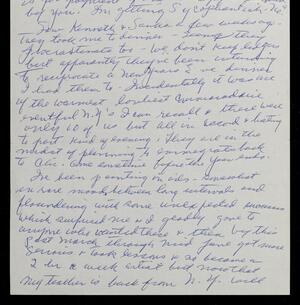 buy you. I'm getting
Saw Kenneth & Sandra a few weeks ago
They took me to dinner - being they
procrastinate too - We don't keep ledgers
but apparently they've been intending
to reciprocate a New Years Eve dinner
I had them to - Incidentally it was one
of the warmest
eventful N.Y's I can recall & there were
only 6 of us but all in accord & hating
to part kind of evening. They are in the
midst of planning to immigrate back
to Calif. - some time before the year ends.
I've been painting in oils - somewhat
in rare moods between long intervals and
floundering with some unexpected successes
which surprised me & I gladly gave to
anyone who wanted them & then by this
past March through mid June got more
serious & took lessons & so became a
2 in a week artist but now that
my teacher is back from N.Y. will